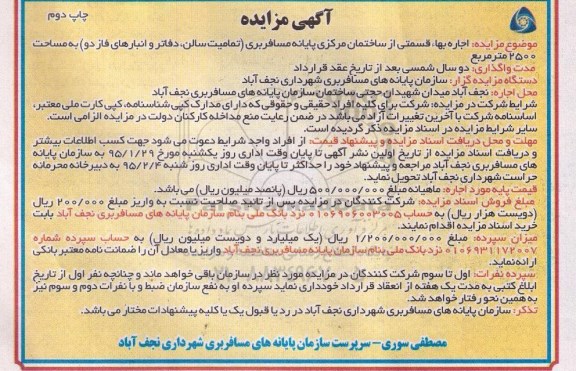 آگهی مزایده
چاپ دوم
موضوع مزایده: اجاره بها، قسمتی از ساختمان مرکزی پایانه مسافربری (تمامیت سالن، دفاتر و انبارهای فاز دو) به مساحت
۲۵۰۰ مترمربع
مدت واگذاری: دو سال شمسی بعد از تاریخ عقد قرارداد
دستگاه مزایده گزار: سازمان پایانه های مسافربری شهرداری نجف آباد
محل اجاره: نجف آباد میدان شهیدان حجتی ساختمان سازمان پایانه های مسافربری نجف آباد
شرایط شرکت در مزایده: شرکت برای کلیه افراد حقیقی و حقوقی که دارای مدارک کپی شناسنامه، کپی کارت ملی معتبر،
اساسنامه شرکت با آخرین تغییرات آزاد می باشد در ضمن رعایت منع مداخله کارکنان دولت در مزایده الزامی است.
سایر شرایط مزایده در اسناد مزایده ذکر گردیده است.
مهلت و محل دریافت اسناد مزایده و پیشنهاد قیمت: از افراد واجد شرایط دعوت می شود جهت کسب اطلاعات بیشتر
و دریافت اسناد مزایده از تاریخ اولین نشر آگهی تا پایان وقت اداری روز یکشنبه مورخ ۹۵/۱/۲۹ به سازمان پایانه
های مسافربری نجف آباد مراجعه و پیشنهاد خود را حداکثر تا پایان وقت اداری روز شنبه ۹۵/۲/۴ به دبیرخانه محرمانه
حراست شهرداری نجف آباد تحویل نماید.
قیمت پایه مورد اجاره: ماهیانه مبلغ ۵۰۰/۰۰۰/۰۰۰ ریال (پانصد میلیون ریال) می باشد.
مبلغ فروش اسناد مزایده: شرکت کنندگان در مزایده پس از تائید صلاحیت نسبت به واریز مبلغ ۲۰۰/۰۰۰ ریال
(دویست هزار ریال) به حساب ۰۱۰۶۹۰۶۰۰۳۰۰۵ نزد بانک ملی بنام سازمان پایانه های مسافربری نجف آباد بابت
خرید اسناد مزایده اقدام نمایند.
میزان سپرده: مبلغ ۱/۲۰۰/۰۰۰/۰۰۰ ریال (یک میلیارد و دویست میلیون ریال) به حساب سپرده شماره
۰۱۰۶۹۳۱۱۷۲۰۰۷ نزد بانک ملی بنام سازمان پایانه های مسافربری نجف آباد واریز یا معادل آن را ضمانت نامه معتبر بانکی
ارائه نماید.
سپرده نفرات: اول تا سوم شرکت کنندگان در مزایده مورد نظر در سازمان باقی خواهد ماند و چنانچه نفر اول از تاریخ
ابلاغ کتبی به مدت یک هفته از انعقاد قرارداد خودداری نماید سپرده او به نفع سازمان ضبط و با نفرات دوم و سوم نیز
به همین نحو رفتار خواهد شد.
تذکر: سازمان پایانه های مسافربری شهرداری نجف آباد در رد یا قبول یک یا کلیه پیشنهادات مختار می باشد.
مصطفی سوری – سرپرست سازمان پایانه های مسافربری شهرداری نجف آباد